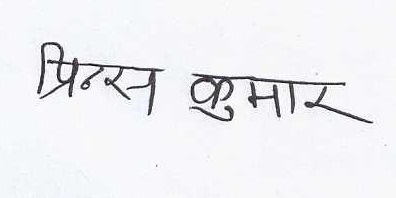 प्रिन्स कुमार